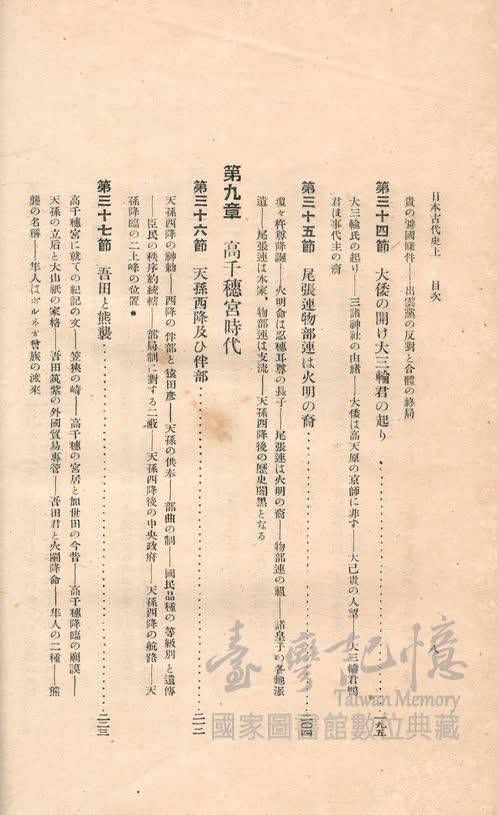 日本古代史上　目次　　八
貴の讓國條件——出雲黨の反對と合體の終局
第三十四節　大倭の開け大三輪君の起り………………九五
大三輪氏の起り——三諸神社の由緖——大倭は高天原の京師に非ず——大己貴の人望——大三輪君鴨
君は事代主の裔
第三十五節　尾張連物部連は火明の裔………………一〇四
瓊々杵尊降誕——火明命は忍穗耳尊の長子——尾張連は火明の裔——物部連の祖——諸皇子の各地派
遣——尾張連は本家、物部連は支流——天孫西降後の歷史闇黑となる
第九章　高千穗宮時代
第三十六節　天孫西降及ひ伴部………………一一二
天孫西降の神勅——西降の伴部と猿田彥——天孫の供奉——部曲の制——國民品種の等級別と遺傳
——臣民の秩序約統轄——部局制に對する二蔽——天孫西降後の中央政府——天孫西降の航路——天
孫降臨の二上峰の位置
第三十七節　吾田と熊襲………………一二三
高千穗宮に就ての紀記の文——笠狹の崎——高千穗の宮居と加世田の今昔——高千穗降臨の廟謨——
天孫の立后と大山祇の家格——吾田筑紫の外國貿易專管——吾田君と火闌降命——隼人の二種——熊
襲の名稱——隼人はボルネオ曾族の渡來
臺灣記憶
Taiwan Memory
國家圖書館數位典藏